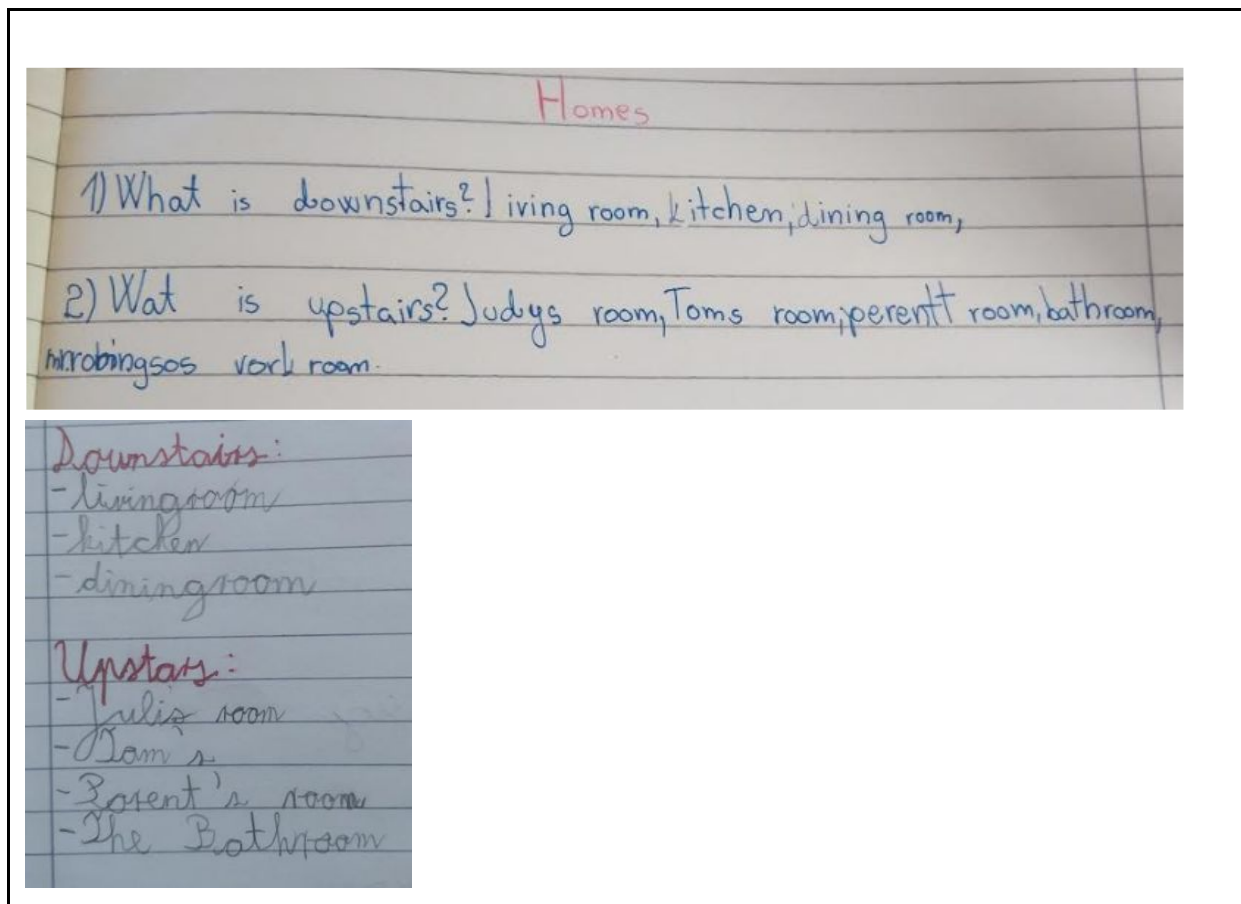 Homes
1) What is downstairs? living room, kitchen, dining room,
2) Wat is upstairs? Judys room, Toms room, perentt room, bathroom,
mr.robingsos vork room.
Downstairs:
- livingroom
- kitchen
- diningroom
Upstars:
- Julis room
- Tom's
- Parent's room
- The Bathroom